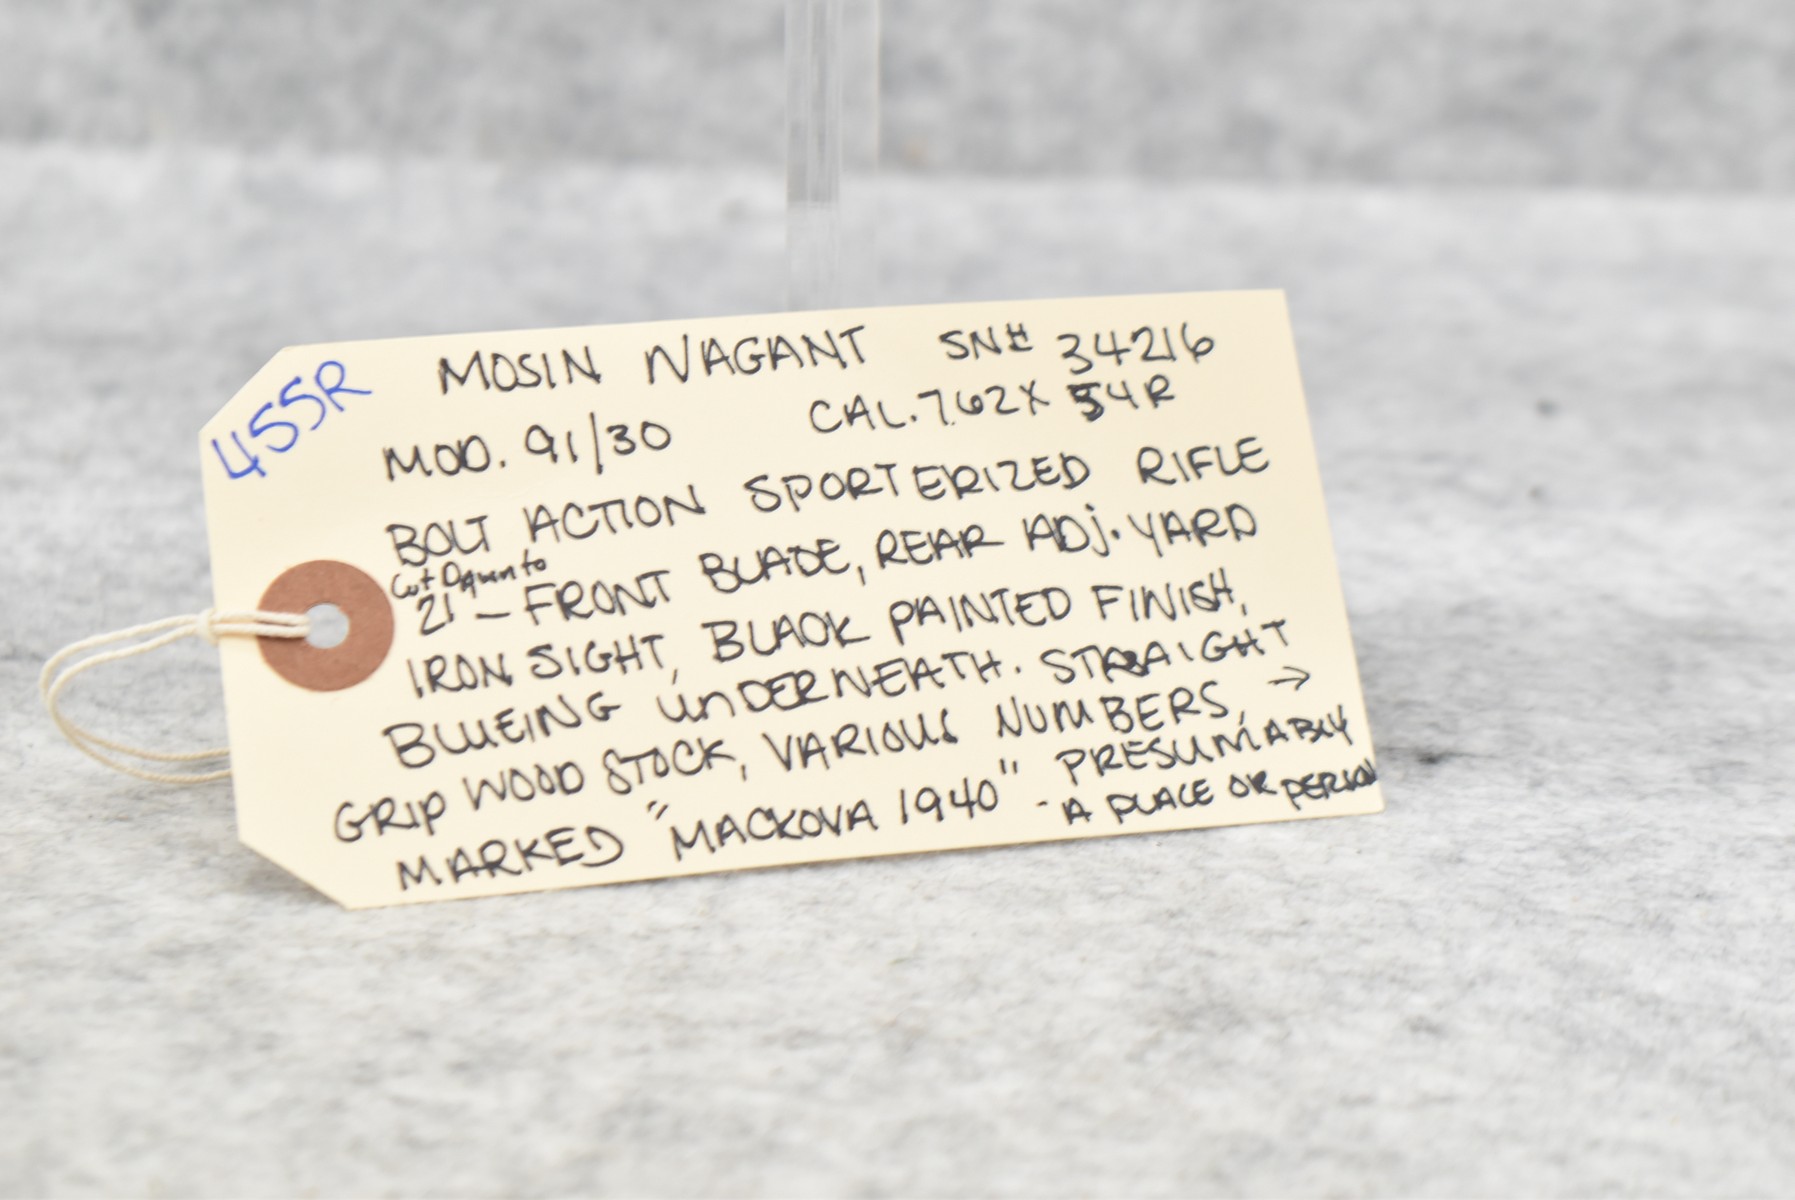 455R
MOSIN NAGANT SN# 34216
MOD. 91/30 CAL. 7.62X 54R
BOLT ACTION SPORTERIZED RIFLE
Cut Down to
21" - FRONT BLADE, REAR ADJ. YARD
IRON SIGHT, BLACK PAINTED FINISH,
BLUEING UNDERNEATH. STRAIGHT
GRIP WOOD STOCK, VARIOUS NUMBERS, →
MARKED "MACKOVA 1940" - PRESUMABLY
A PLACE OR PERSON